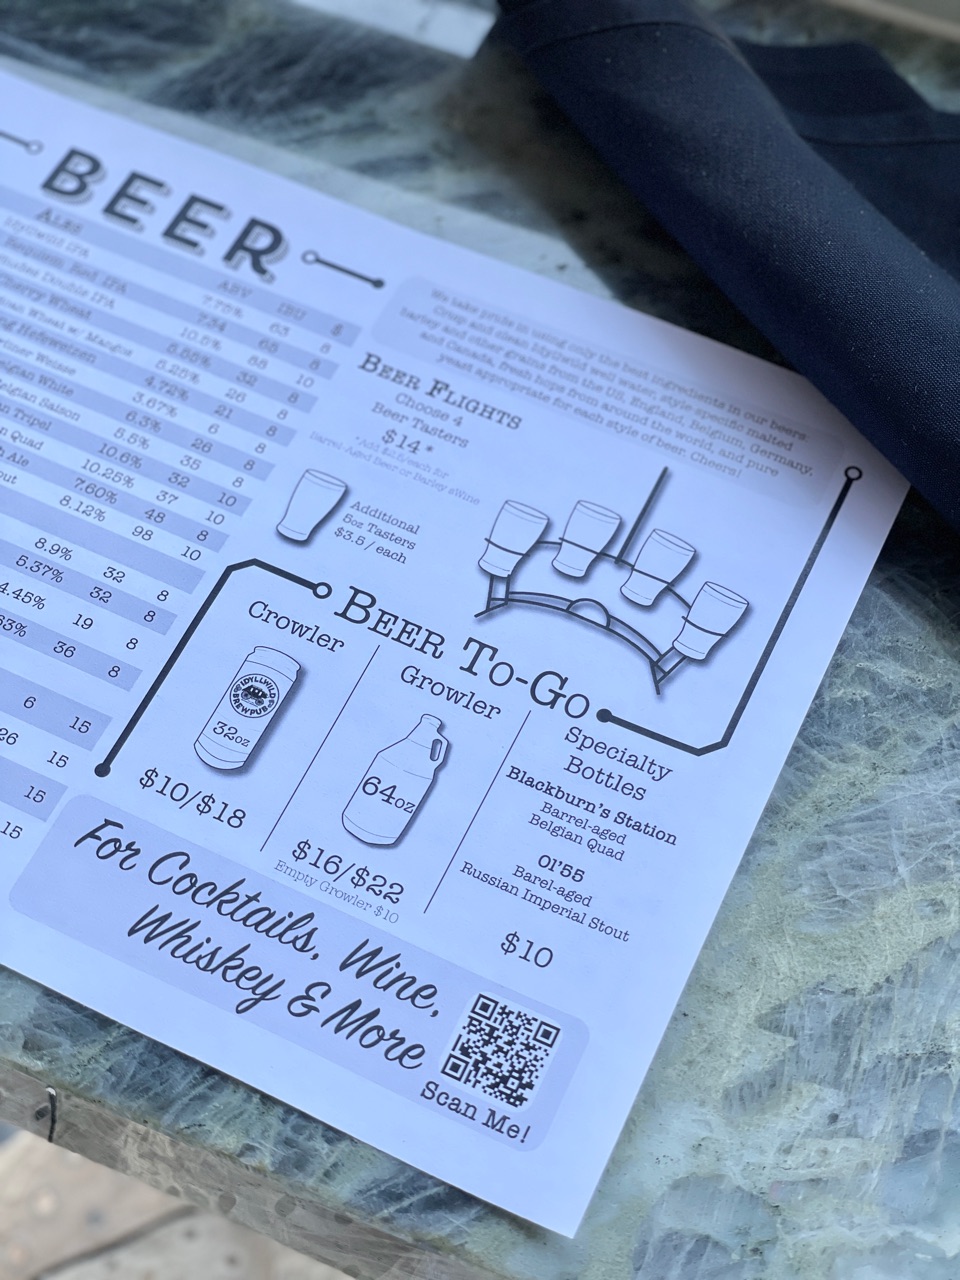 BEER
ALES ABV IBU $
Idyllwild IPA 7.75% 63 8
Red IPA 7.34 65 8
Double IPA 10.5% 88 10
Cherry Wheat 5.55% 32 8
Wheat w/ Mangos 5.25% 26 8
Hefeweizen 4.72% 21 8
Weisse 3.67% 6 8
Belgian White 6.3% 26 8
Belgian Saison 5.5% 35 8
Tripel 10.6% 32 10
Quad 10.25% 37 10
Ale 7.60% 48 8
8.12% 98 10
8.9% 32 8
5.37% 32 8
4.45% 19 8
36 8
6 15
26 15
15
15
We take pride in using only the best ingredients in our beers:
Crisp and clean Idyllwild well water, style-specific malted
barley and other grains from the US, England, Belgium, Germany,
and Canada, fresh hops from around the world, and pure
yeast appropriate for each style of beer. Cheers!
BEER FLIGHTS
Choose 4
Beer Tasters
$14*
Barrel Aged Beer or Barley Wine
Additional
5oz Tasters
$3.5 / each
BEER TO-GO
Crowler
IDYLLWILD
BREWPUB
32oz
$10/$18
Growler
64oz
$16/$22
Empty Growler $10
Specialty
Bottles
Blackburn's Station
Barrel-aged
Belgian Quad
Ol'55
Barel-aged
Russian Imperial Stout
$10
For Cocktails, Wine,
Whiskey & More
Scan Me!